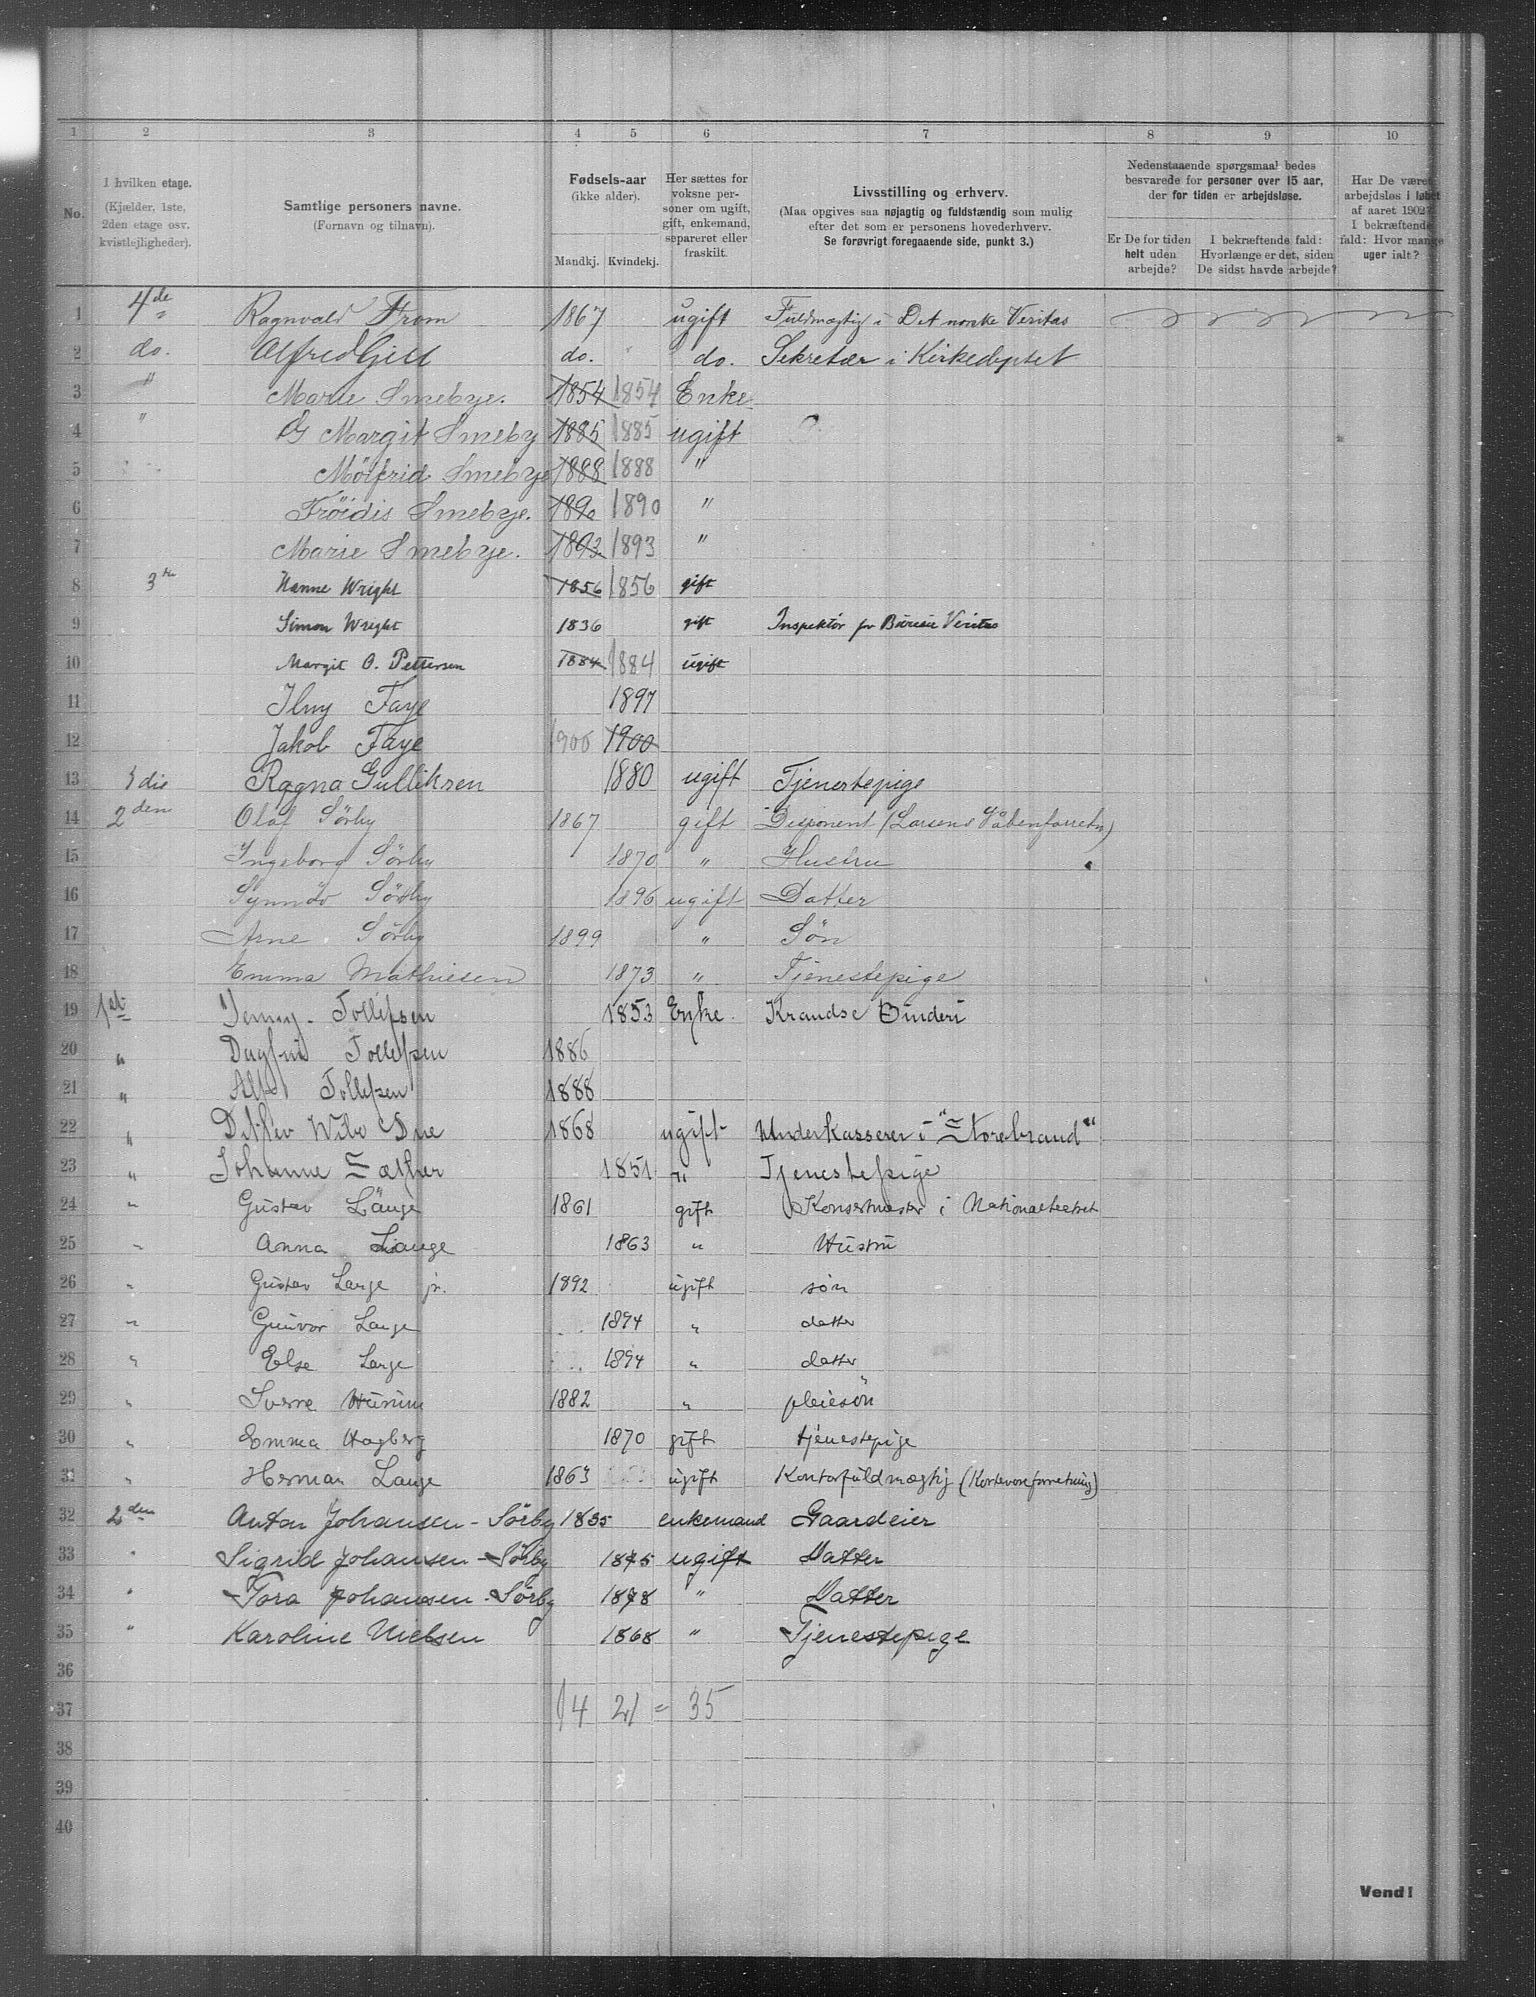 1 2 3 4 5 6 7 8 9 10
No.
I hvilken etage. (Kjælder, 1ste, 2den etage osv. kvistlejligheder).
Samtlige personers navne. (Fornavn og tilnavn).
Fødsels-aar (ikke alder). Mandkj. Kvindekj.
Her sættes for voksne personer om ugift, gift, enkemand, separeret eller fraskilt.
Livsstilling og erhverv. (Maa opgives saa nøjagtig og fuldstændig som mulig efter det som er personens hovederhverv. Se forøvrigt foregaaende side, punkt 3.)
Nedenstaaende spørgsmaal bedes besvarede for personer over 15 aar, der for tiden er arbejdsløse.
Er De for tiden helt uden arbejde?
I bekræftende fald: Hvorlænge er det, siden De sidst havde arbejde?
Har De været arbejdsløs i løbet af aaret 1902? I bekræftende fald: Hvor mange uger ialt?
1 4de Ragnvald From 1867 ugift Fuldmægtig i Det norske Veritas
2 do. Alfred Gjell do. do. Sekretær i Kirkedeptet
3 " Marie Smebye. 1854 1854 Enke
4 " Margit Smeby 1885 1885 ugift
5 Mölfrid Smebye 1888 1888 "
6 Fröidis Smebye. 1890 1890 "
7 Marie Smebye. 1893 1893 "
8 3die Hanne Wright 1856 1856 gift
9 Simon Wright 1836 gift Inspektör for Bureau Veritas
10 Margit O. Pettersen 1884 1884 ugift
11 Ilny Faye 1897
12 Jakob Faye 1900 1900
13 3die Ragna Gulliksen 1880 ugift Tjenestepige
14 2den Olaf Sörby 1867 gift Disponent (Larsens Våbenforretn)
15 Ingeborg Sörby 1870 " Hustru
16 Synnöv Sörby 1896 ugift Datter
17 Arne Sörby 1899 " Sön
18 Emma Mathiesen 1873 " Tjenestepige
19 1st Jenny Tollefsen 1853 Enke. Krandse Binderi
20 " Dagfin Tollefsen 1886
21 " Alf Tollefsen 1888
22 " Ditlev Wibe Due 1868 ugift Underkasserer i "Storebrand"
23 " Johanne Sæther 1851 " Tjenestepige
24 " Gustav Lange 1861 gift Konsertmester i Nationalteatret
25 " Anna Lange 1863 " Hustru
26 " Gustav Lange jr. 1892 ugift sön
27 " Gunvor Lange 1894 " datter
28 " Else Lange 1894 " datter
29 " Sverre 1882 " pleiesön
30 " Emma Hagberg 1870 gift tjenestepige
31 " Herman Lange 1863 ugift Kontorfuldmægtig (Kortevareforretning)
32 2den Anton Johansen-Sörby 1835 enkemand Gaardeier
33 " Sigrid Johansen-Sörby 1875 ugift Datter
34 " Tora Johansen-Sörby 1878 " Datter
35 " Karoline Nielsen 1868 " Tjenestepige
36
37 14 21 = 35
38
39
40
Vend!